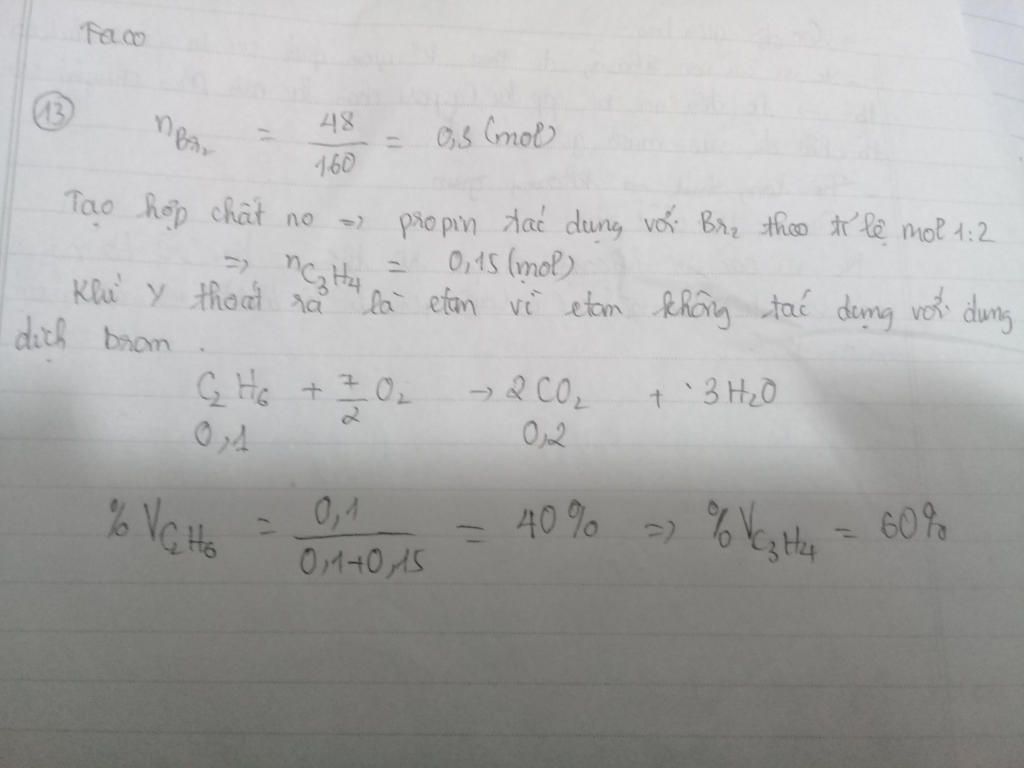 Faco
13
nBr₂ = 48/160 = 0,3 (mol)
Tạo hợp chất no => propin tác dụng với Br₂ theo tỉ lệ mol 1:2
=> nC₃H₄ = 0,15 (mol)
Khí Y thoát ra là etan vì etan không tác dụng với dung
dịch brom.
C₂H₆ + 7/2 O₂ → 2CO₂ + 3H₂O
0,1 0,2
%VC₂H₆ = 0,1/(0,1+0,15) = 40% => %VC₃H₄ = 60%